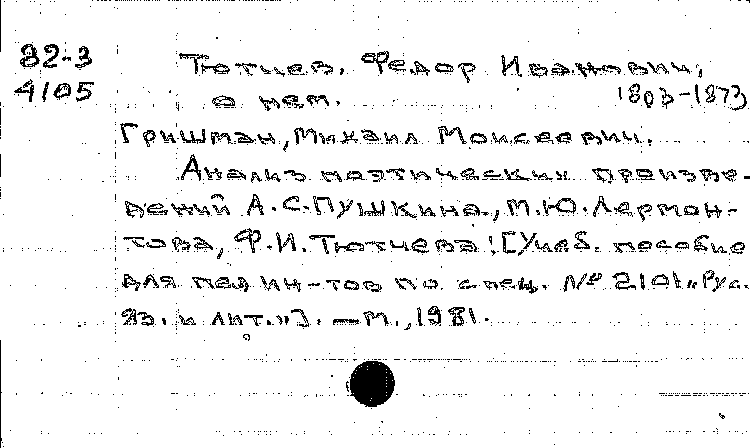 82-3
4105
Тютчев, Федор Иванович,
о нем.
1803-1873
Гришман, Михаил Моисеевич.
Анализ поэтических произве-
дений А.С.Пушкина, М.Ю.Лермон-
това, Ф.И.Тютчева: [Учеб. пособие
для пед ин-тов по спец. № 2101 „Рус.
яз. и лит."]. —М.,1981.